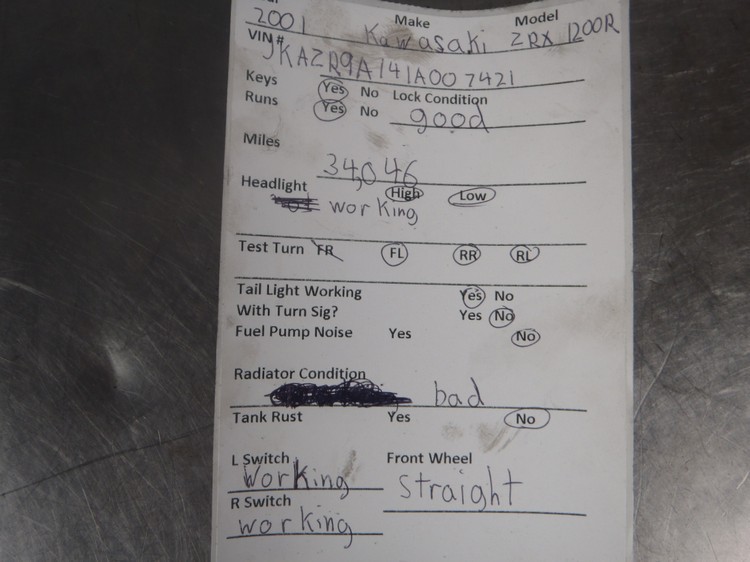 2001 Make Kawasaki Model ZRX 1200R
VIN# JKAZR9A141A007421
Keys Yes No Lock Condition
Runs Yes No good
Miles
34,046
Headlight High Low
working
Test Turn FR FL RR RL
Tail Light Working Yes No
With Turn Sig? Yes No
Fuel Pump Noise Yes No
Radiator Condition
bad
Tank Rust Yes No
L Switch Front Wheel
Working straight
R Switch
working